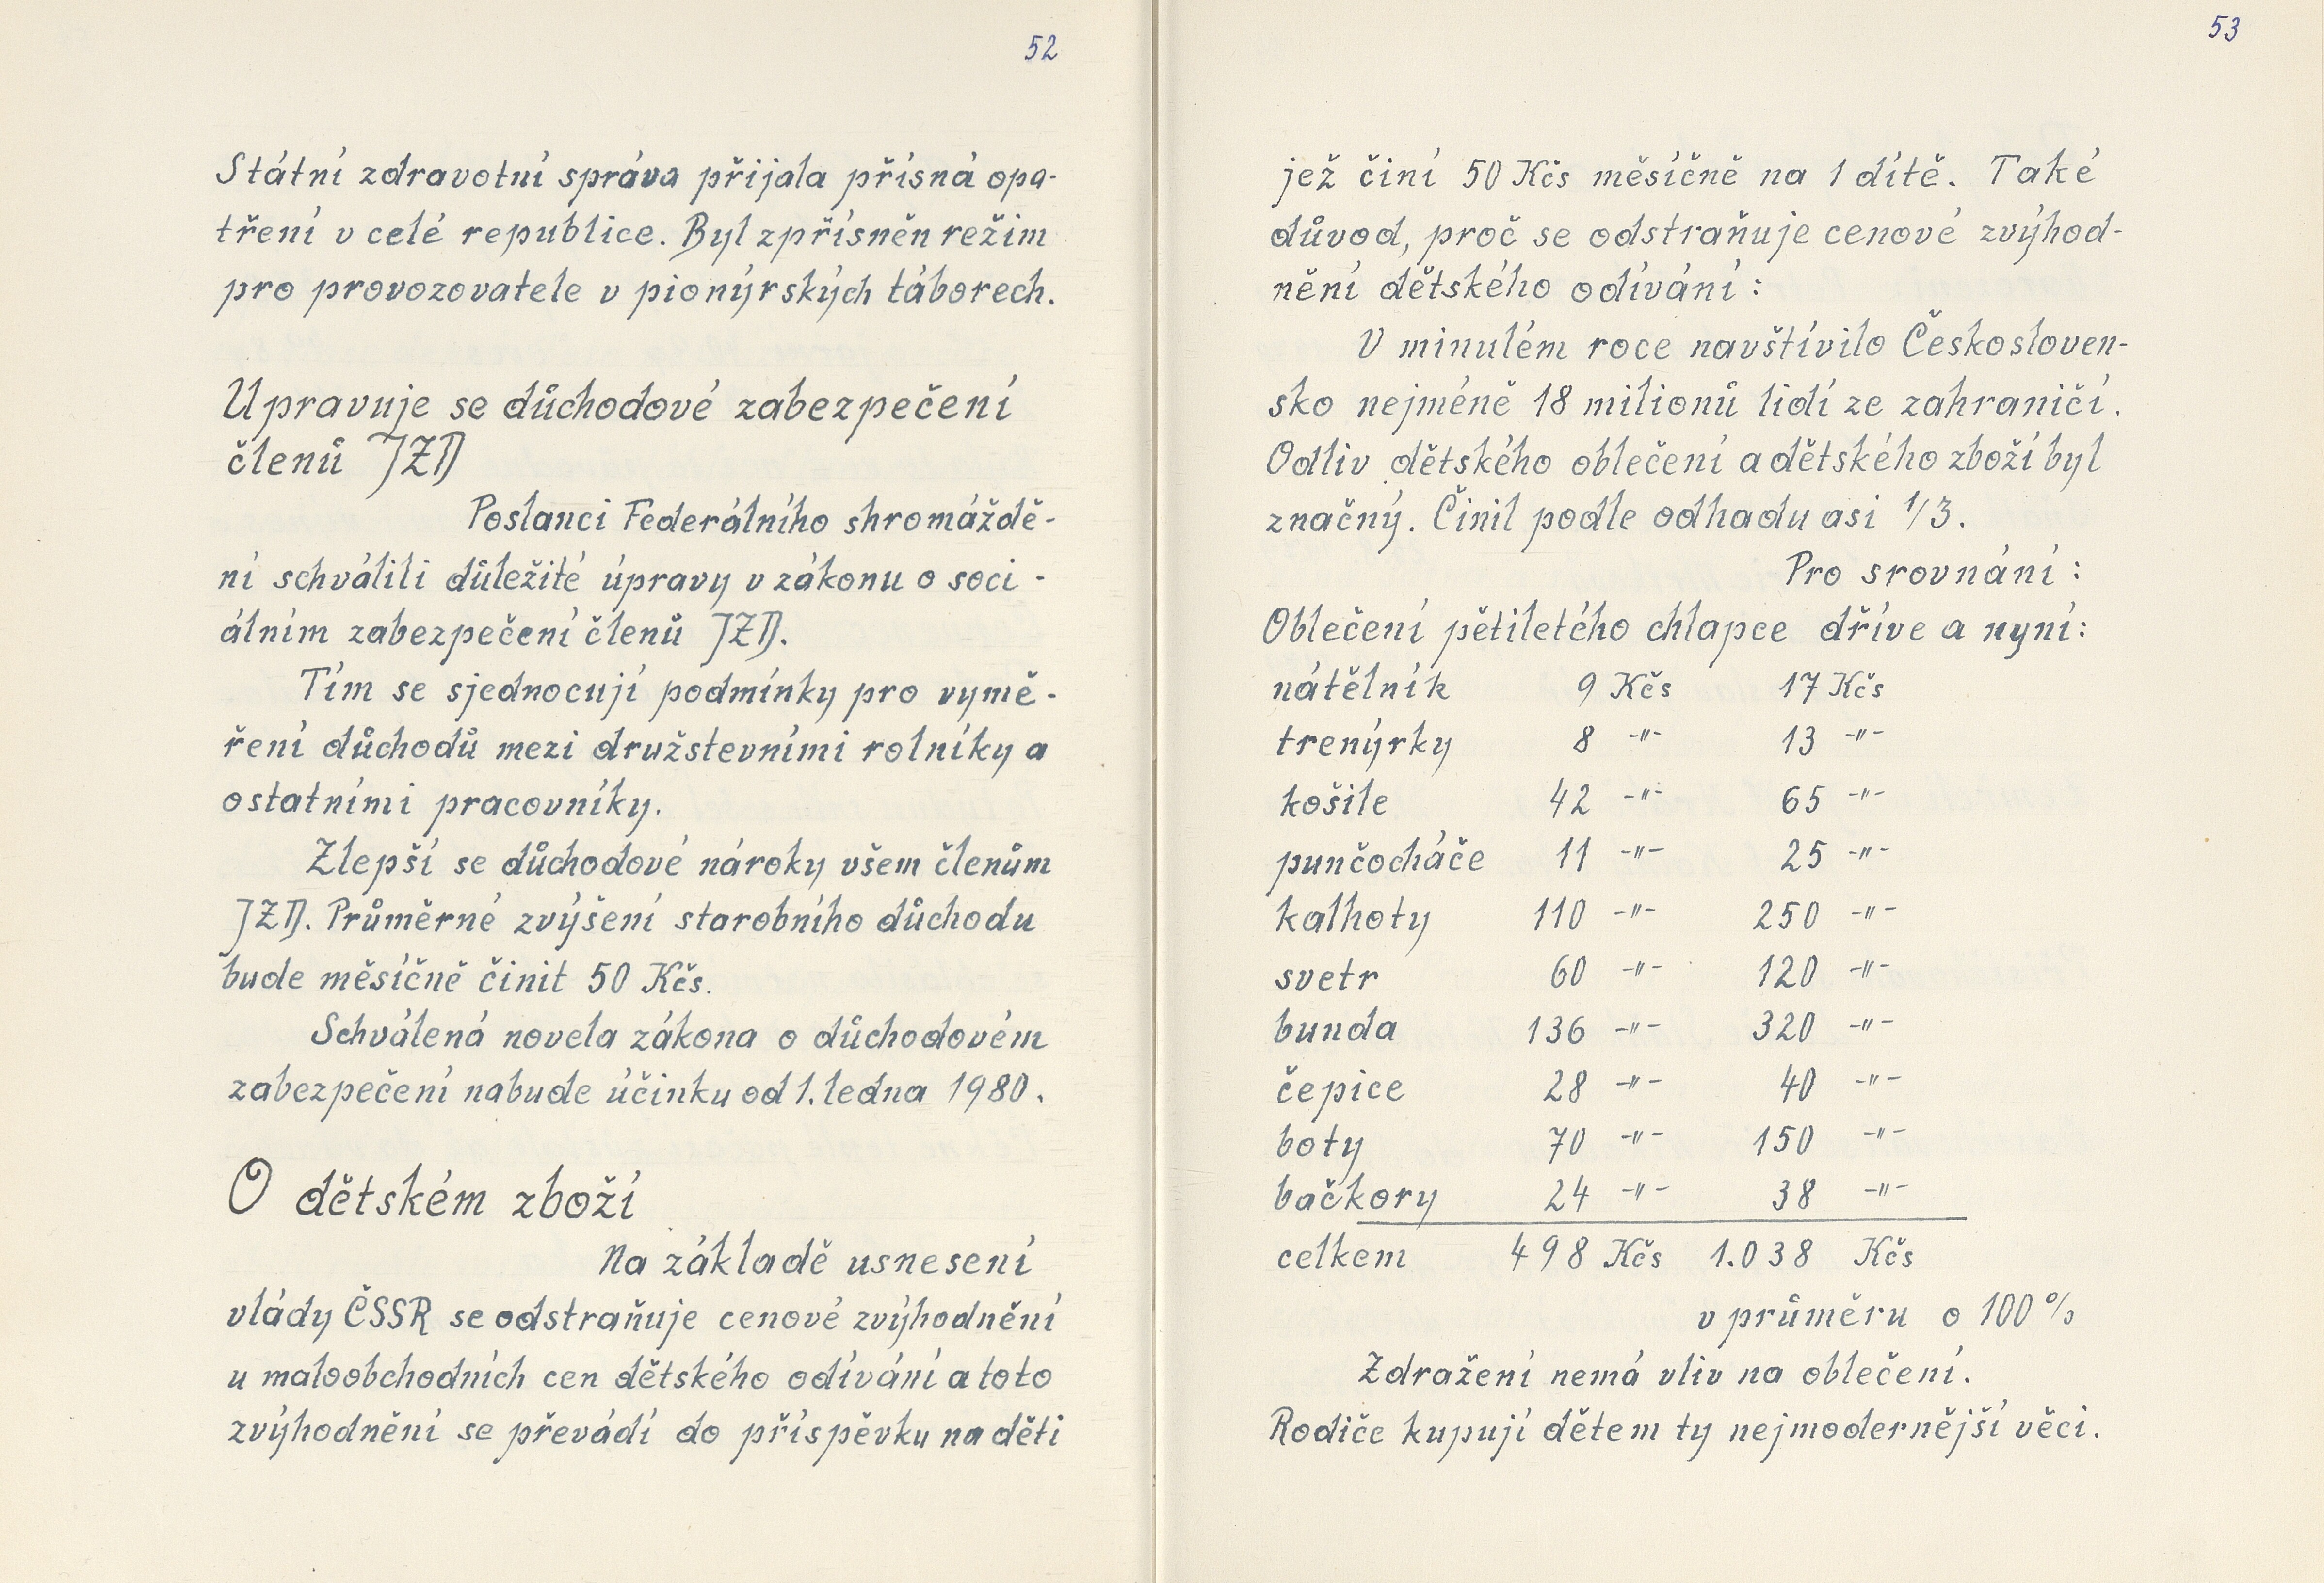 52
Státní zdravotní správa přijala přísná opa-
tření v celé republice. Byl zpřísněn režim
pro provozovatele v pionýrských táborech.
Upravuje se důchodové zabezpečení
členů JZD
Poslanci Federálního shromáždě-
ní schválili důležité úpravy v zákonu o soci-
álním zabezpečení členů JZD.
Tím se sjednocují podmínky pro vymě-
ření důchodů mezi družstevními rolníky a
ostatními pracovníky.
Zlepší se důchodové nároky všem členům
JZD. Průměrné zvýšení starobního důchodu
bude měsíčně činit 50 Kčs.
Schválená novela zákona o důchodovém
zabezpečení nabude účinku od 1. ledna 1980.
O dětském zboží
Na základě usnesení
vlády ČSSR se odstraňuje cenové zvýhodnění
u maloobchodních cen dětského odívání a toto
zvýhodnění se převádí do příspěvku na děti
53
jež činí 50 Kčs měsíčně na 1 dítě. Také
důvod, proč se odstraňuje cenové zvýhod-
nění dětského odívání:
V minulém roce navštívilo Českosloven-
sko nejméně 18 milionů lidí ze zahraničí.
Odliv dětského oblečení a dětského zboží byl
značný. Činil podle odhadu asi 1/3.
Pro srovnání:
Oblečení pětiletého chlapce dříve a nyní:
nátělník 9 Kčs 17 Kčs
trenýrky 8 -"- 13 -"-
košile 42 -"- 65 -"-
punčocháče 11 -"- 25 -"-
kalhoty 110 -"- 250 -"-
svetr 60 -"- 120 -"-
bunda 136 -"- 320 -"-
čepice 28 -"- 40 -"-
boty 70 -"- 150 -"-
bačkory 24 -"- 38 -"-
celkem 498 Kčs 1.038 Kčs
v průměru o 100 %
Zdražení nemá vliv na oblečení.
Rodiče kupují dětem ty nejmodernější věci.